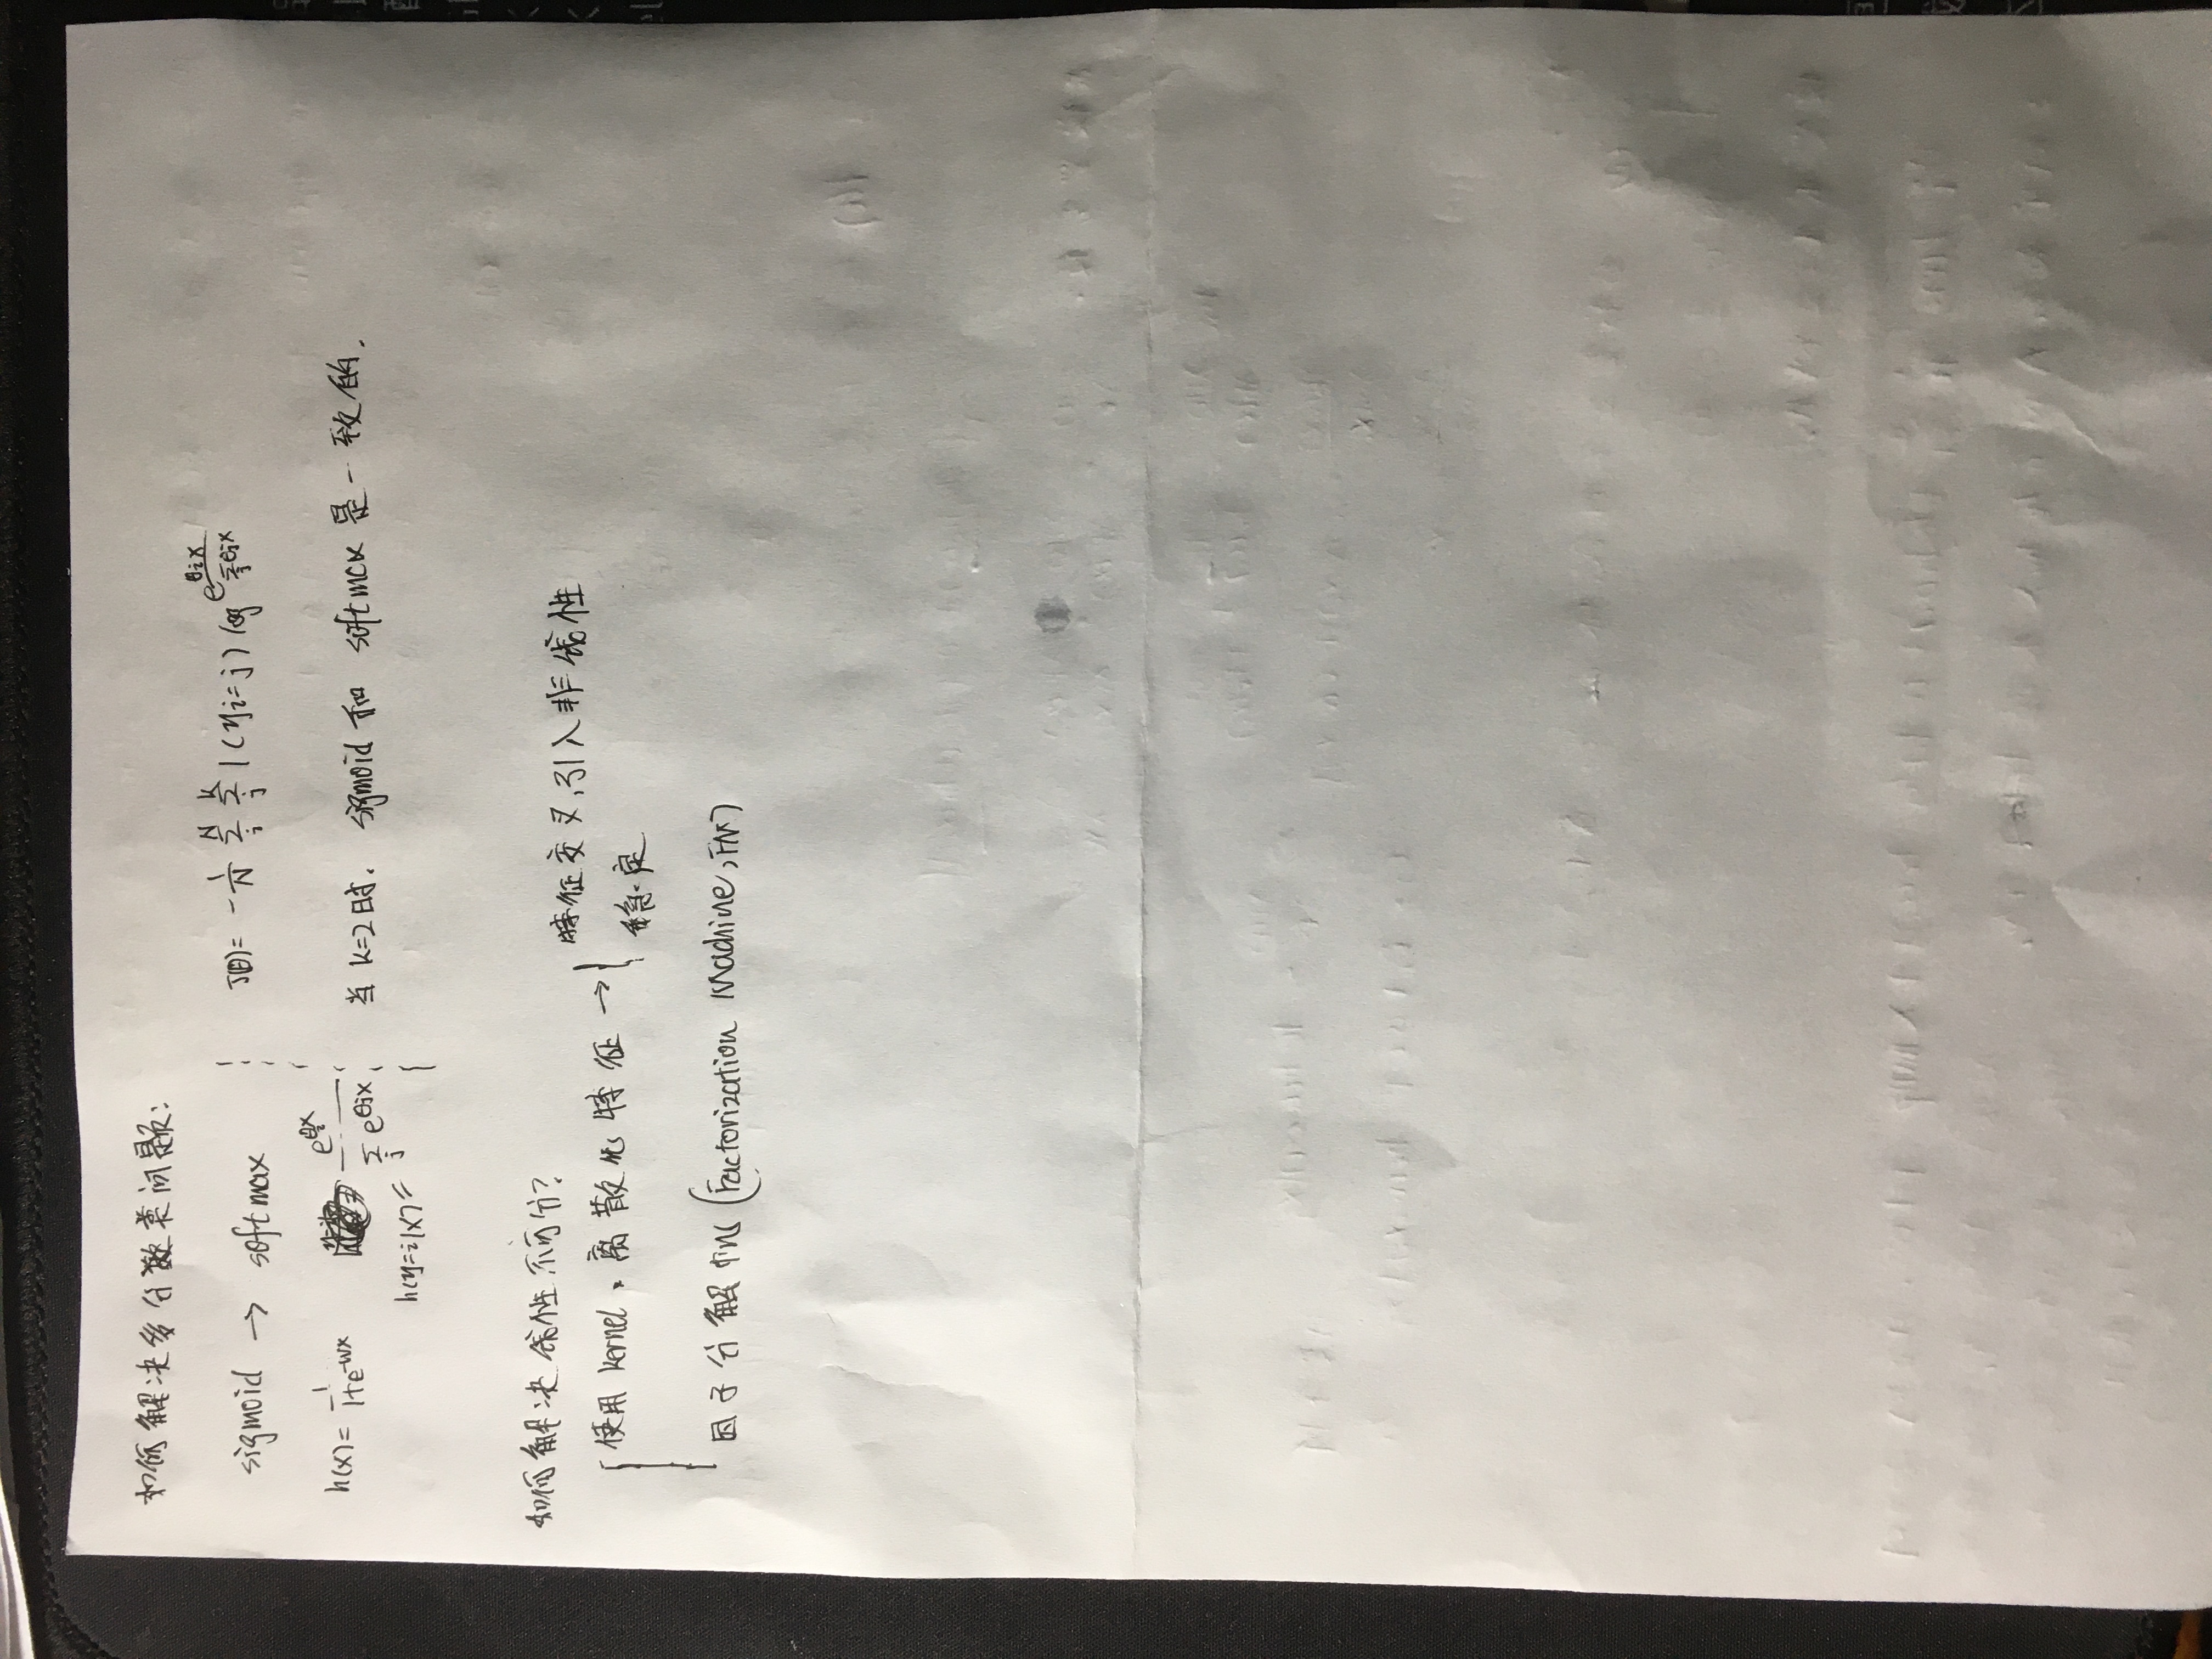 如何解决多分类问题:
sigmoid → softmax
h(x) = 1/(1+e^-wx)
h(y=i|x) = e^θix / Σj e^θjx
J(θ) = -1/N Σi^N Σj^K 1(yi=j) log e^θix / Σj θjx
当 k=2时. sigmoid 和 softmax 是一致的.
如何解决线性不可分?
使用 kernel、离散化特征 → 特征交叉,引入非线性
稳定
因子分解机 (Factorization Machine, FM)